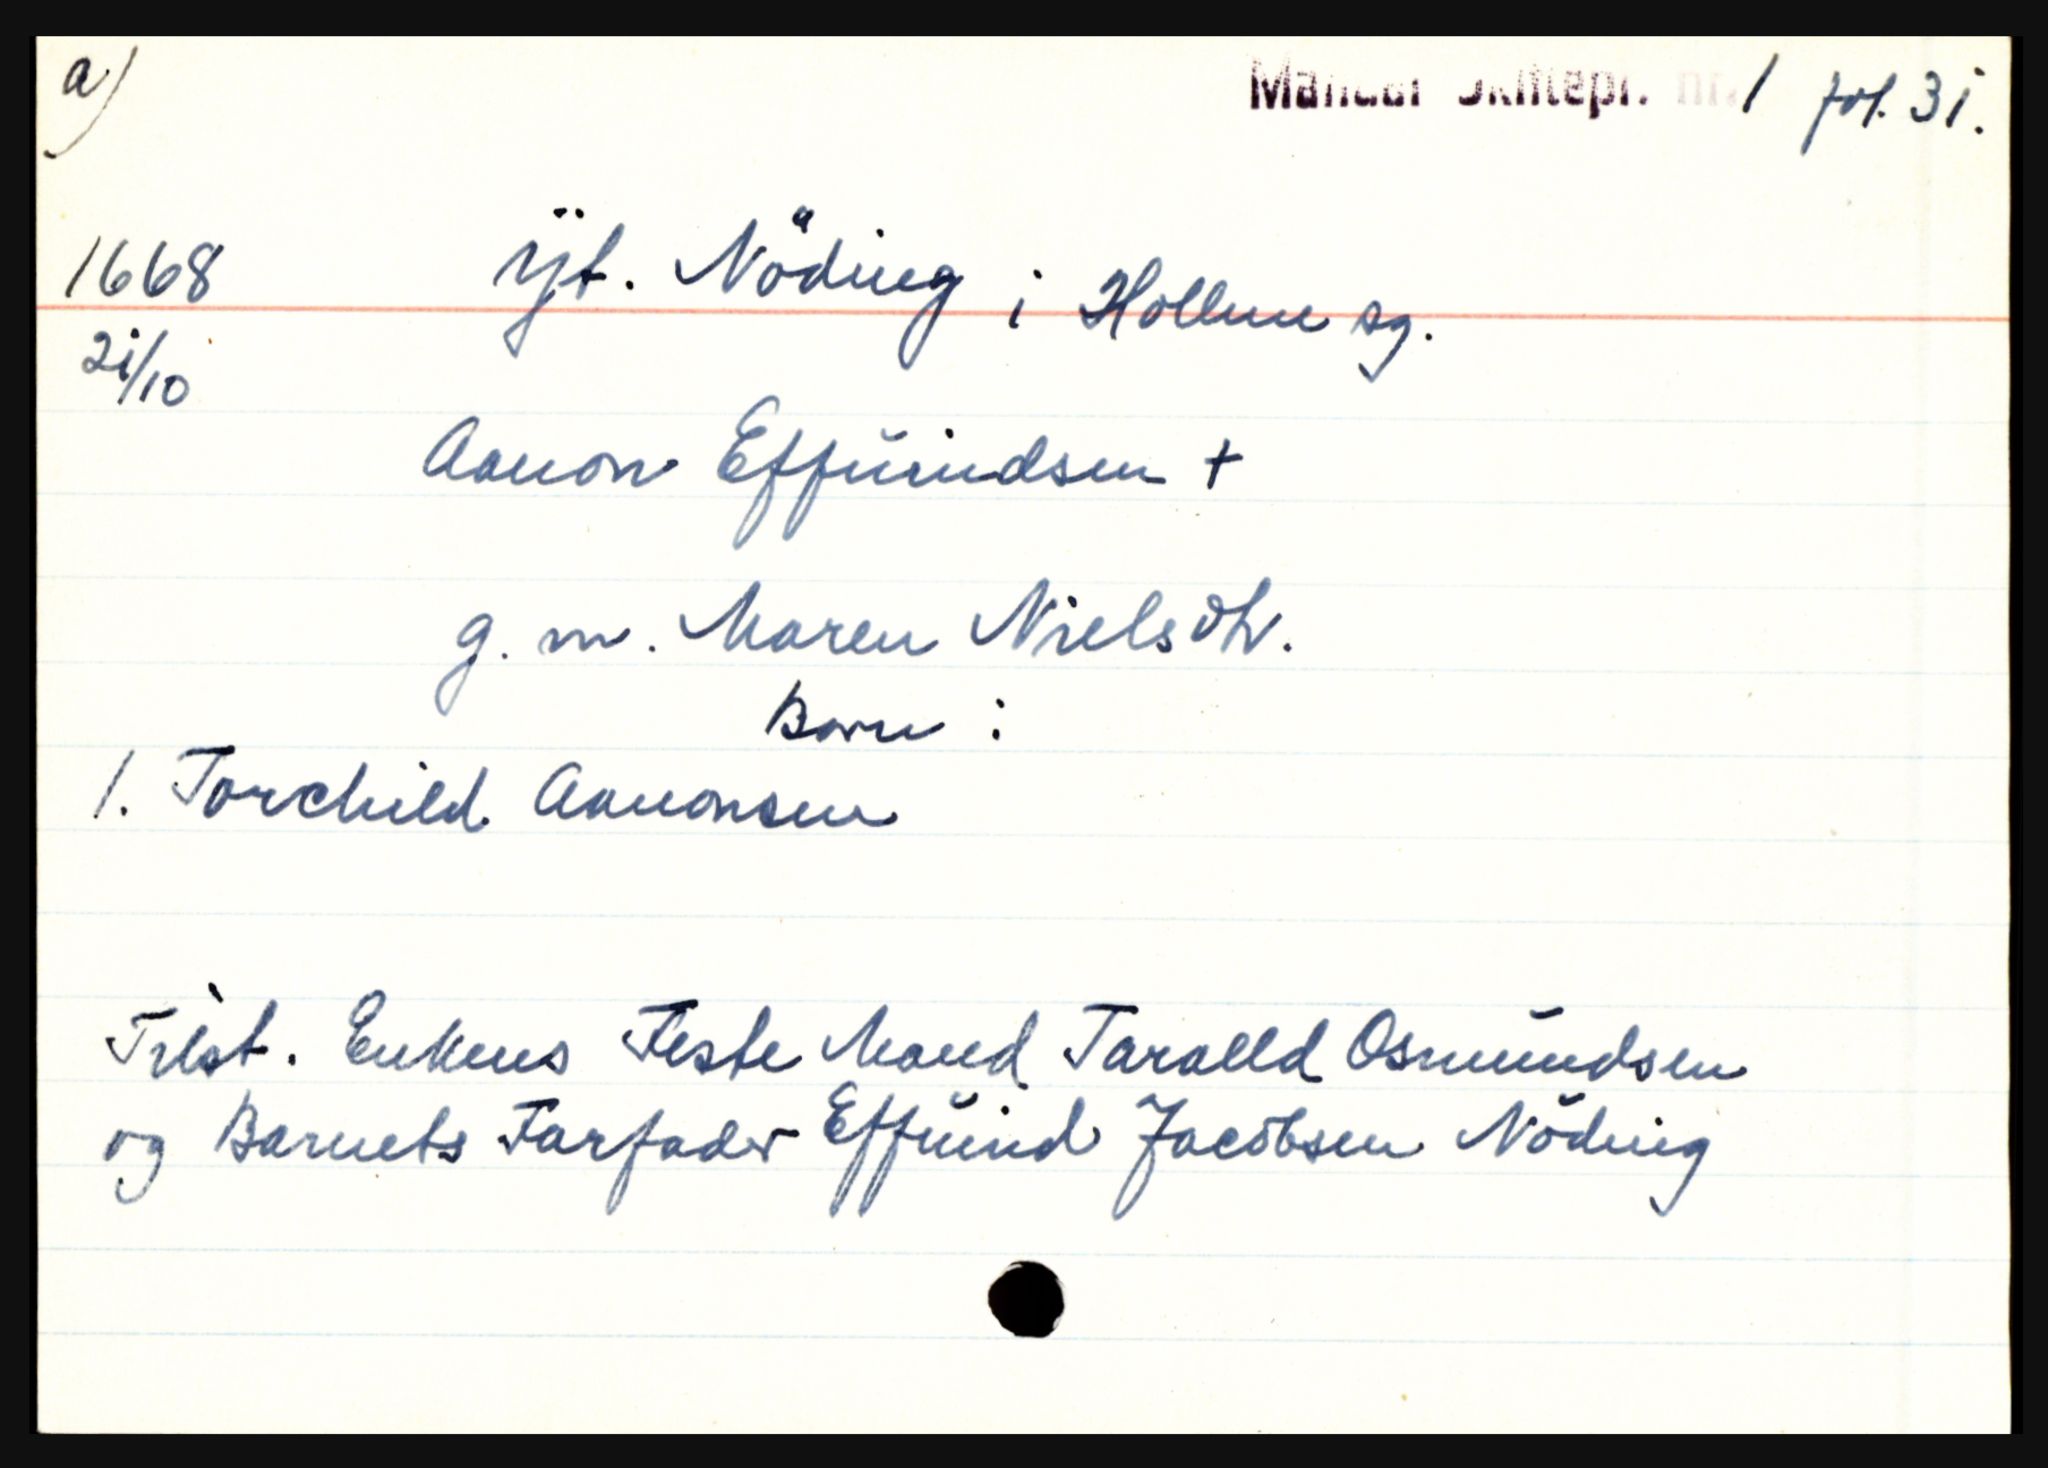 a)
Mandal Skiftepr. nr. 1 fol. 31.
1668 Yt. Nöding i Hollum sg.
21/10
Aanon Effuindsen +
g. m. Maren Nielsdtr.
Barn :
1. Torchild Aanonsen
Tilst. Enkens Feste Mand Taralld Osmundsen
og Barnets Farfader Effuind Jacobsen Nöding